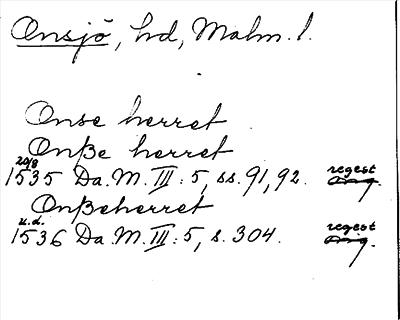 Onsjö, hd, Malm. l.
Onse herret
Onße herret
20/8 regest
1535 Da.M. III:5, ss. 91, 92. orig.
Onßeherret
u.d. regest
1536 Da.M. III:5, s. 304. orig.